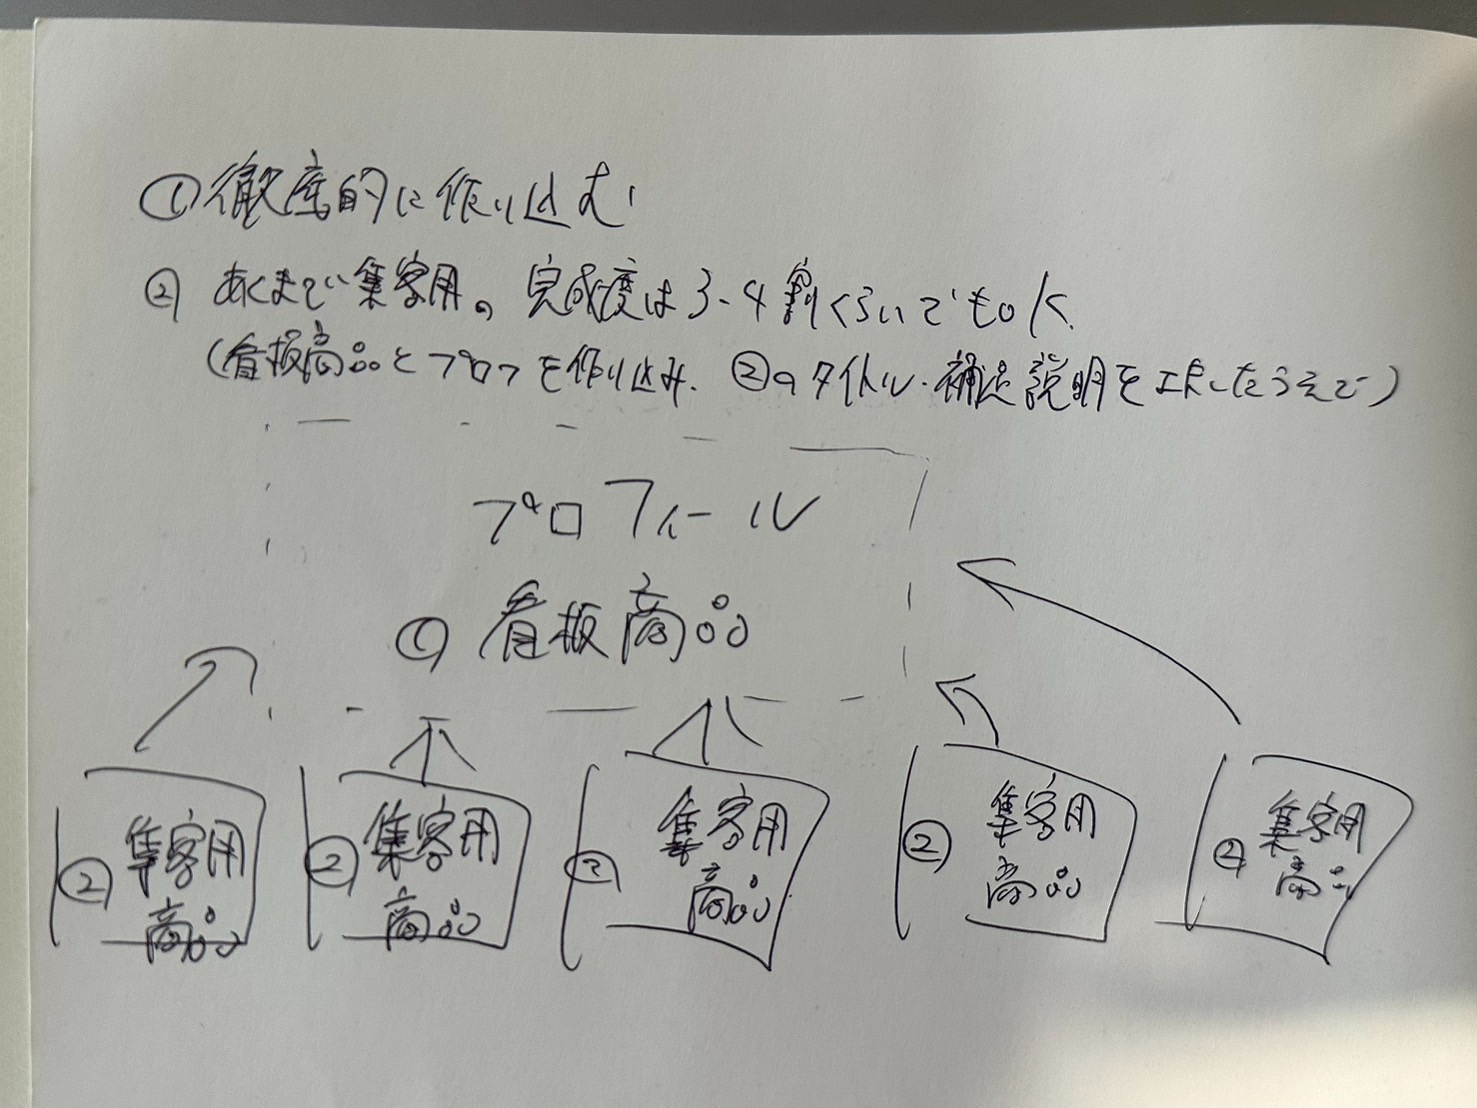 ①徹底的に作り込む
② あくまで集客用。完成度は3-4割くらいでもOK.
(看板商品とプロフを作り込み、②のタイトル・補足説明を工夫したうえで)
プロフィール
① 看板商品
② 集客用
商品
② 集客用
商品
② 集客用
商品
② 集客用
商品
② 集客用
商品